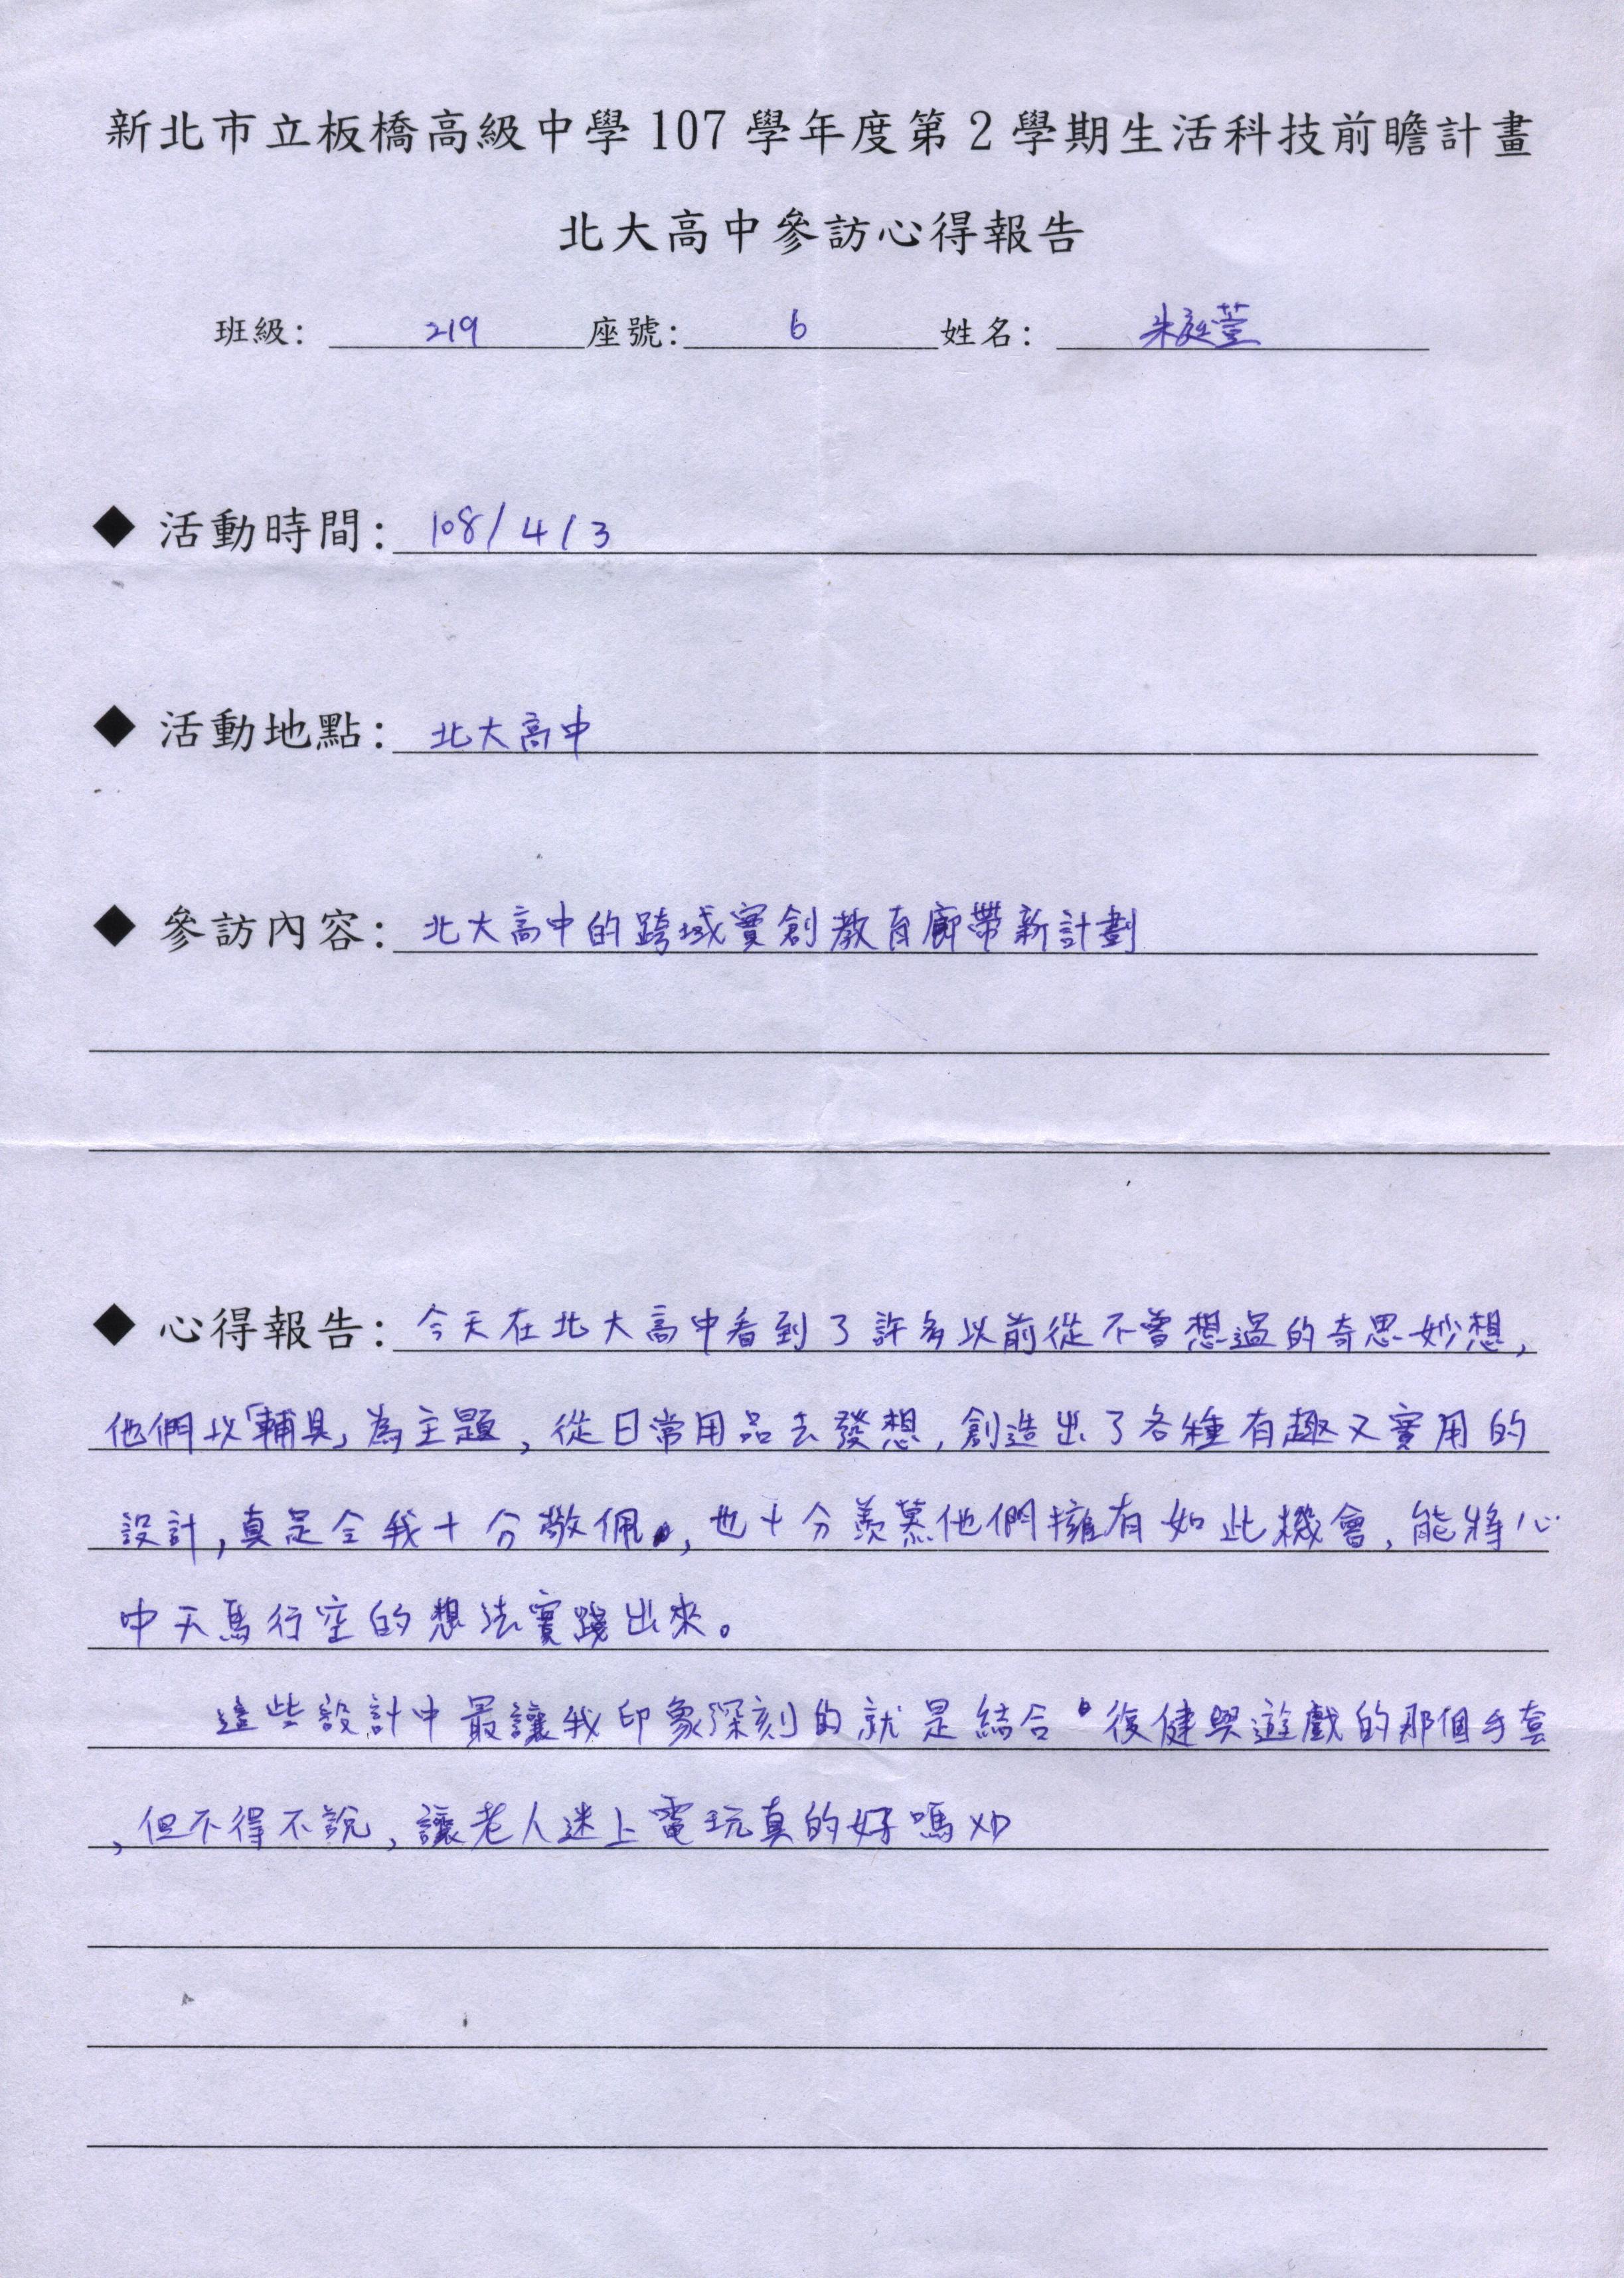 新北市立板橋高級中學 107 學年度第 2 學期生活科技前瞻計畫
北大高中參訪心得報告
班級： 219 座號： 6 姓名： 朱庭萱
◆ 活動時間： 108/4/3
◆ 活動地點： 北大高中
◆ 參訪內容： 北大高中的跨域實創教育廊帶新計劃
◆ 心得報告： 今天在北大高中看到了許多以前從不曾想過的奇思妙想，
他們以「輔具」為主題，從日常用品去發想，創造出了各種有趣又實用的
設計，真是令我十分敬佩，也十分羨慕他們擁有如此機會，能將心
中天馬行空的想法實踐出來。
這些設計中最讓我印象深刻的就是結合復健與遊戲的那個手套
，但不得不說，讓老人迷上電玩真的好嗎XD